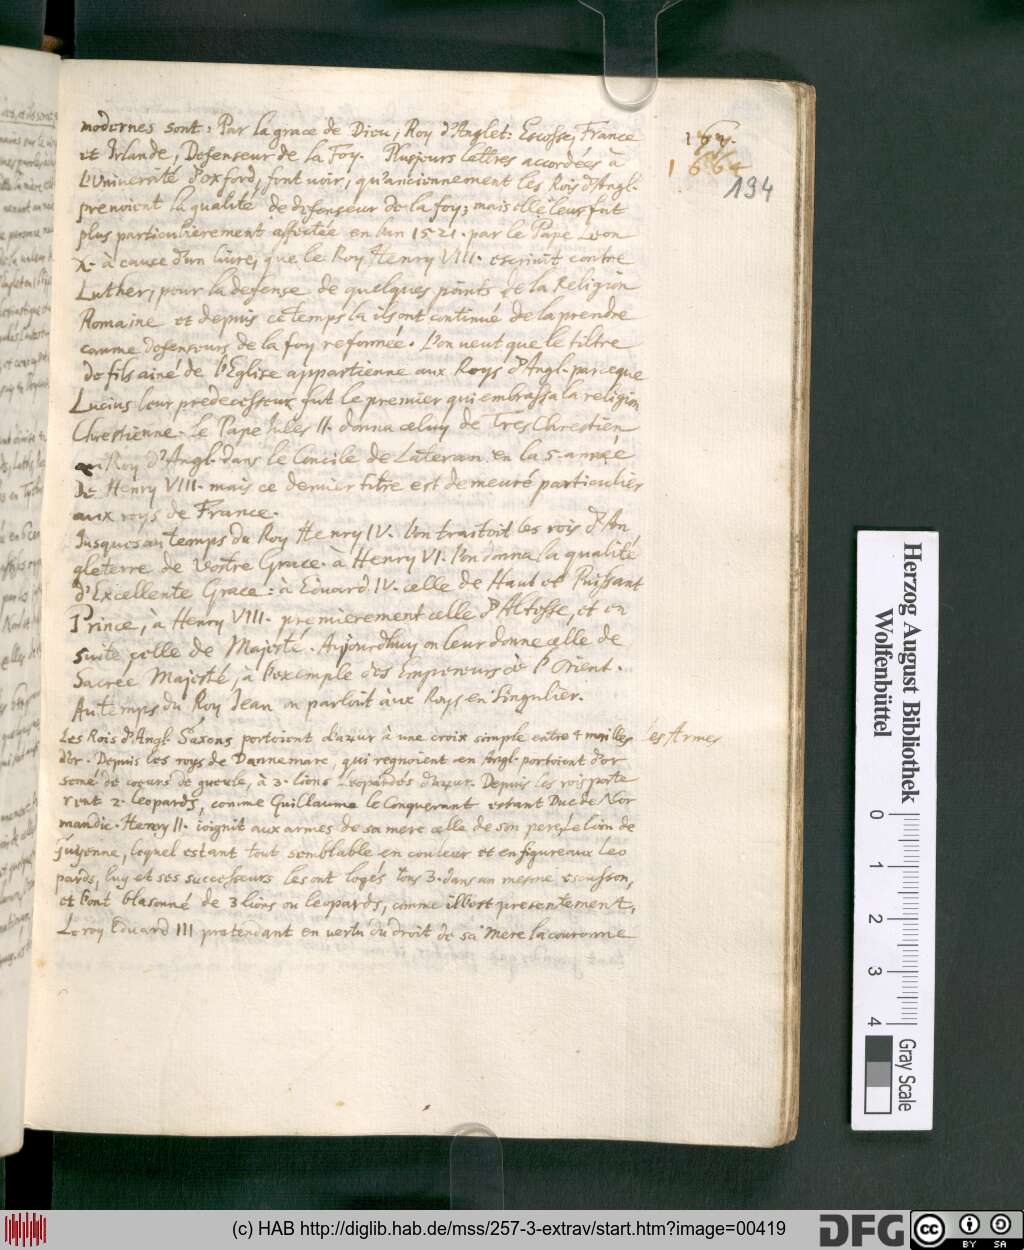 modernes sont: Par la grace de Dieu, Roy d'Anglet: Escosse, France
et Irlande, Defenseur de la Foy. Plusjours lettres accordées à
L'Université d'oxford, font voir, qu'anciennement les Rois d'Angl.
prenoient la qualité de defenseur de la foy; mais elle leur fut
plus particulierement affectée en l'an 1521. par le Pape Leon
X. à cause d'un livre, que le Roy Henry VIII. escrivit contre
Luther, pour la defense de quelques points de la Religion
Romaine et depuis ce temps la ils ont continué de la prendre
comme defenseurs de la foy reformée. L'on veut que le tiltre
de fils ainé de l'Eglise appartienne aux Roys d'Angl. parceque
Lucius leur predecesseur fut le premier qui embrassa la religion
Chrestienne. le Pape Jules II. donna celuy de Tres Chrestien
au Roy d'Angl. dans le Concile de Lateran en la 5. année
de Henry VIII. mais ce dernier titre est demeuré particulier
aux roys de France.
Jusques au temps du Roy Henry IV. l'on traitoit les rois d'An
gleterre de Vostre Grace. à Henry VI. l'on donna la qualité
d'Excellente Grace: à Eduard IV. celle de Haut et Puissant
Prince, à Henry VIII. premierement celle d'Altesse, et en
suite celle de Majesté. Aujourdhuy on leur donne celle de
Sacrée Majesté, à l'exemple des Empereurs de l'Orient.
Au temps du Roy Jean on parloit aux Roys en Singulier.
Les Rois d'Angl. Saxons portoient d'azur à une croix simple entre 4 merilles
d'or. Depuis les roys de Dannemarc, qui regnoient en Angl. portoient d'or
semé de coeurs de gueule, à 3. lions Leopardés d'azur. Depuis les rois porte
rent 2. leopards, comme Guillaume le Conquerant estant Duc de Nor
mandie. Henry II. ioignit aux armes de sa mere celle de son pere, le lion de
Guyenne, lequel estant tout semblable en couleur et en figure aux leo
pards, luy et ses successeurs les ont logés tous 3. dans un mesme escusson,
et l'ont blasonné de 3 lions ou leopards, comme il l'est presentement,
Le roy Eduard III pretendant en vertu du droit de sa Mere la couronne
les Armes
1664
194
Herzog August Bibliothek
Wolfenbüttel
0 1 2 3 4
Gray Scale
(c) HAB http://diglib.hab.de/mss/257-3-extrav/start.htm?image=00419
DFG
cc BY SA